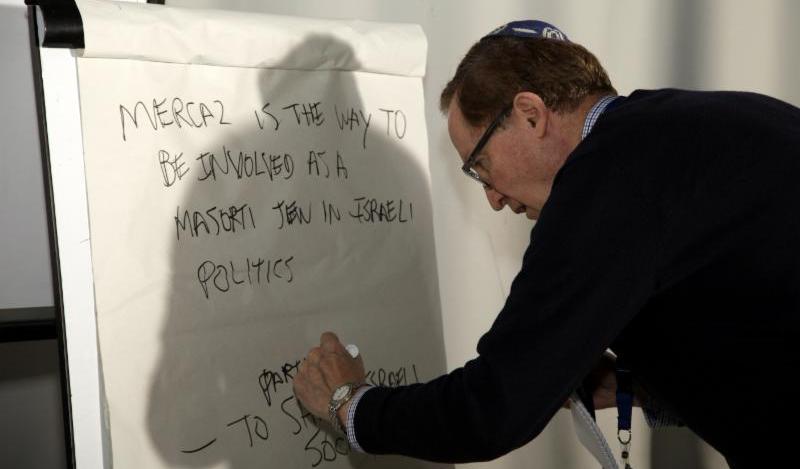 MERCAZ IS THE WAY TO
BE INVOLVED AS A
MASORTI JEW IN ISRAELI
POLITICS
ISRAELI
— TO